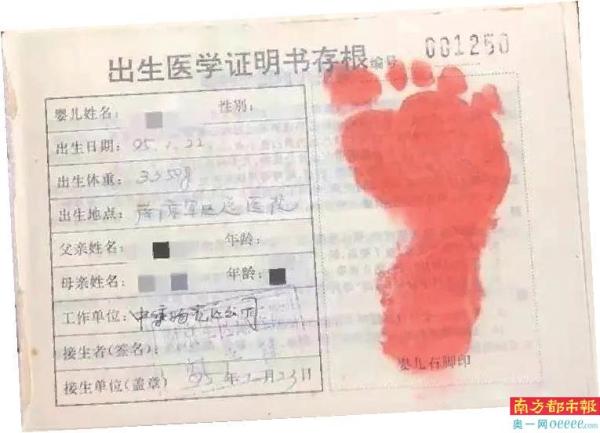 出生医学证明书存根 编号 001250
婴儿姓名： 性别：
出生日期：95.1.22
出生体重：3350g
出生地点：南京军区总医院
父亲姓名： 年龄：
母亲姓名： 年龄：
工作单位：公司
接生者(签名)：
接生单位(盖章) 95年 月23日
婴儿右脚印
南方都市报
奥一网oeeee.com